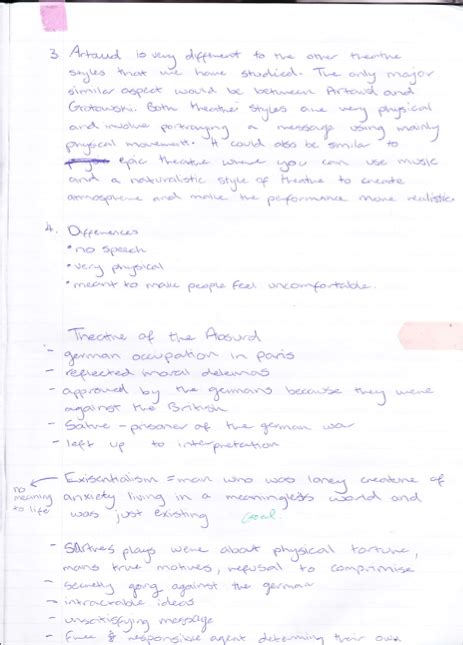 3. Artaud is very different to the other theatre
styles that we have studied. The only major
similar aspect would be between Artaud and
Grotowski. Both theatre styles are very physical
and involve portraying a message using mainly
physical movement. It could also be similar to
epic theatre where you can use music
and a naturalistic style of theatre to create
atmosphere and make the performance more realistic.
4. Differences
• no speech
• very physical
• meant to make people feel uncomfortable.
Theatre of the Absurd
- german occupation in Paris
- reflected moral delemas
- approved by the germans because they were
against the British
- Satre - prisoner of the german war
- left up to interpretation
no meaning to life ← Exisentialism = man who was loney creature of
anxiety living in a meaningless world and
was just existing
- Sartres plays were about physical torture,
mans true motives, refusal to comprimise
- secretly going against the german
- intractable ideas
- unsatisfying message
- Free & responsible agent determing their own